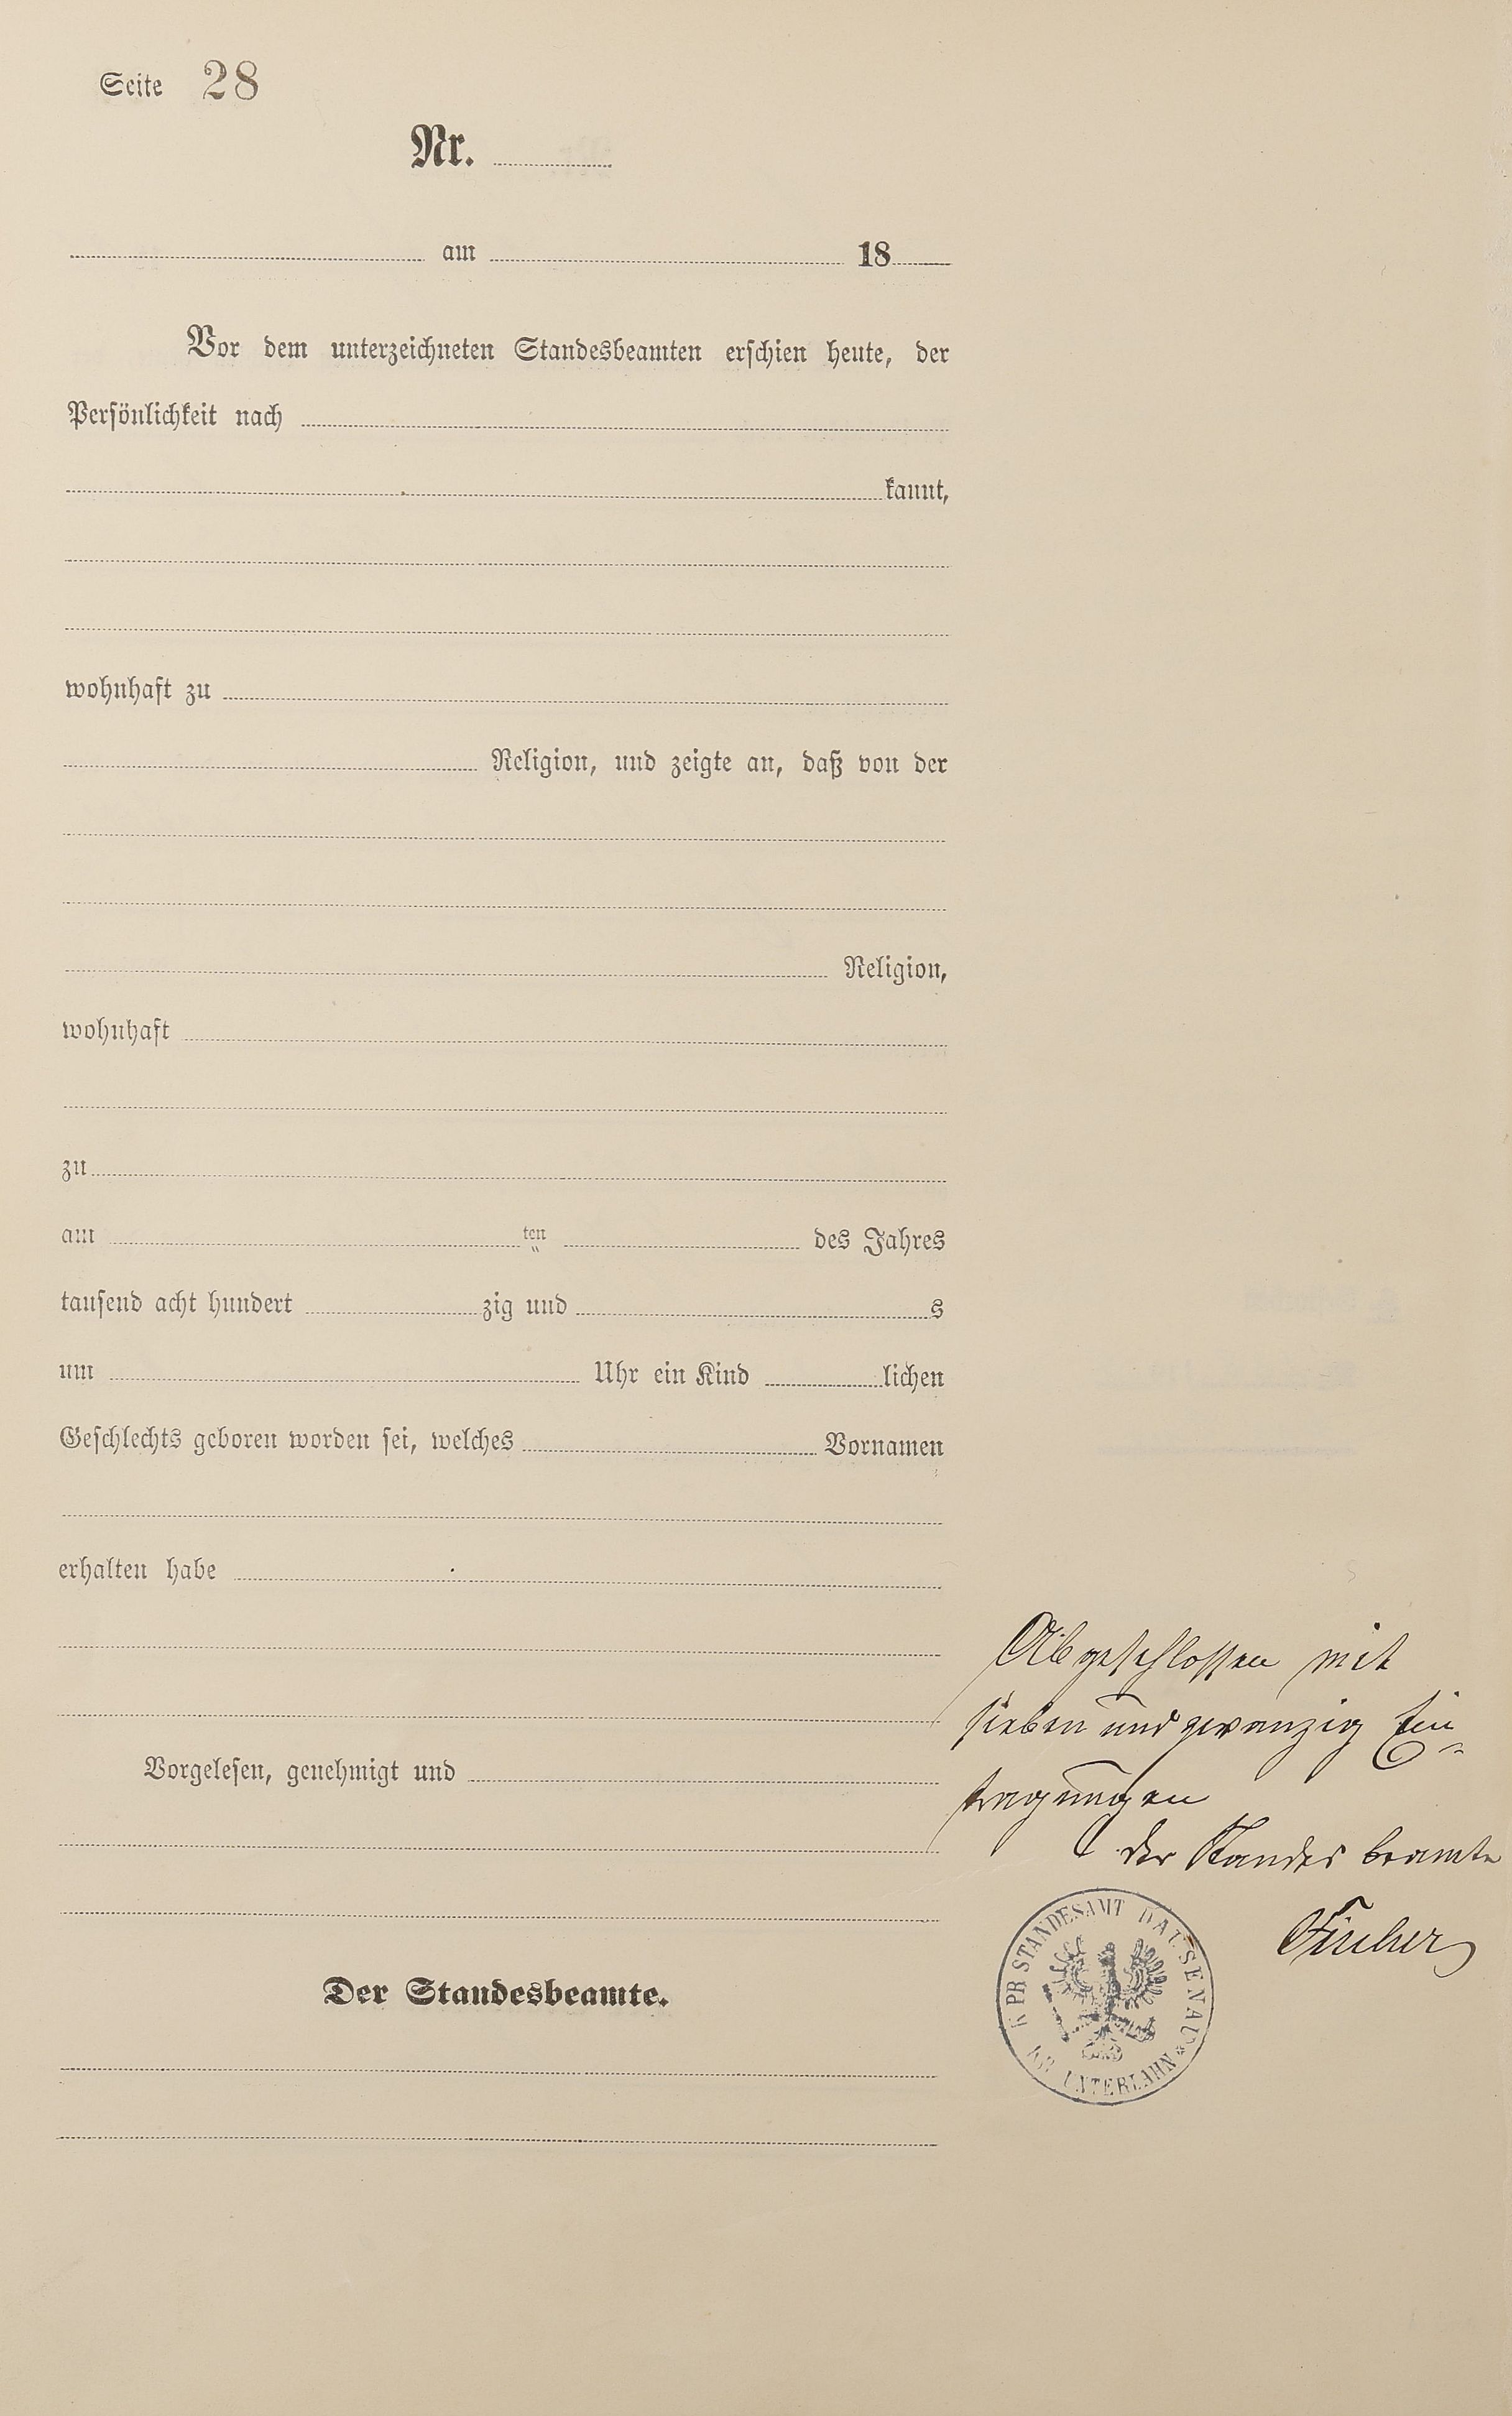 Seite 28
Nr.
am 18
Vor dem unterzeichneten Standesbeamten erschien heute, der
Persönlichkeit nach
kannt,
wohnhaft zu
Religion, und zeigte an, daß von der
Religion,
wohnhaft
zu
am ten des Jahres
tausend acht hundert zig und s
um Uhr ein Kind lichen
Geschlechts geboren worden sei, welches Vornamen
erhalten habe
Vorgelesen, genehmigt und
Der Standesbeamte.
Abgeschlossen mit
sieben und zwanzig Ein-
tragungen
Der Standesbeamte
Fischer
K PR STANDESAMT DAUSENAU
KR UNTERLAHN